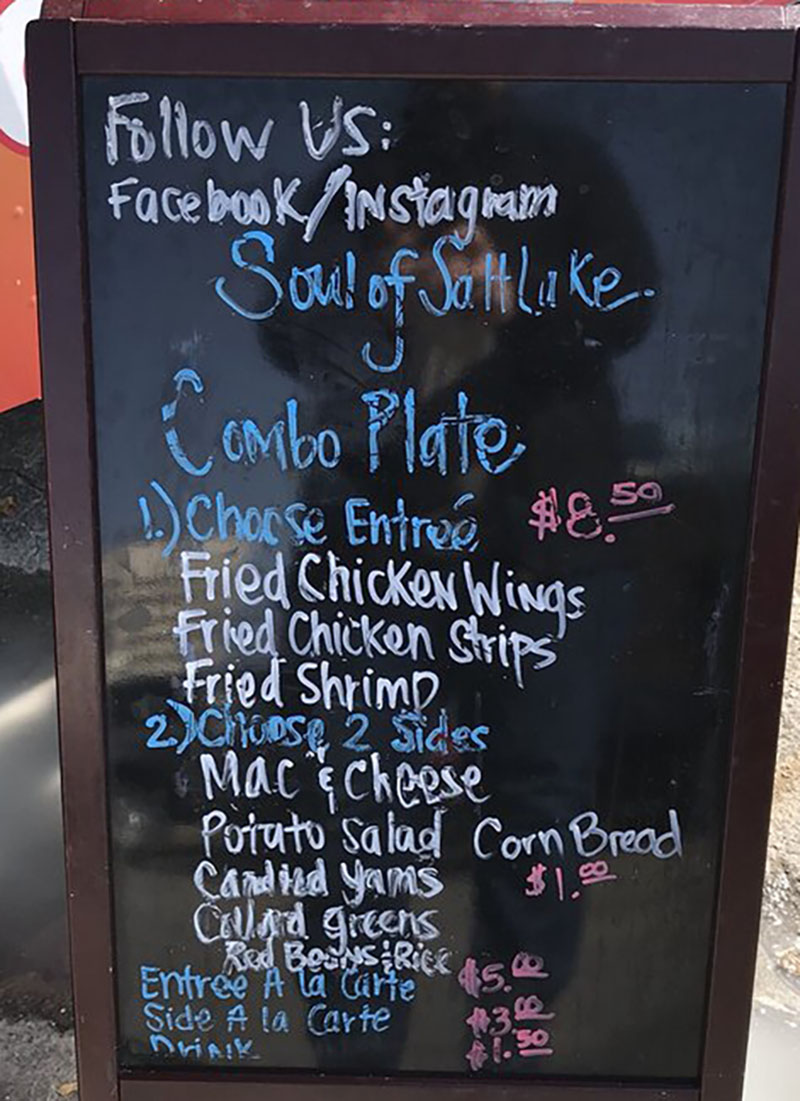 Follow US:
Facebook/Instagram
Soul of Salt Lake.
Combo Plate
1.) Choose Entreé $8.50
Fried Chicken Wings
Fried Chicken Strips
Fried Shrimp
2.) Choose 2 Sides
Mac & Cheese
Potato Salad Corn Bread
Candied Yams $1.00
Collard greens
Red Beans & Rice
Entree A la Carte $5.00
Side A la Carte $3.00
Drink $1.50